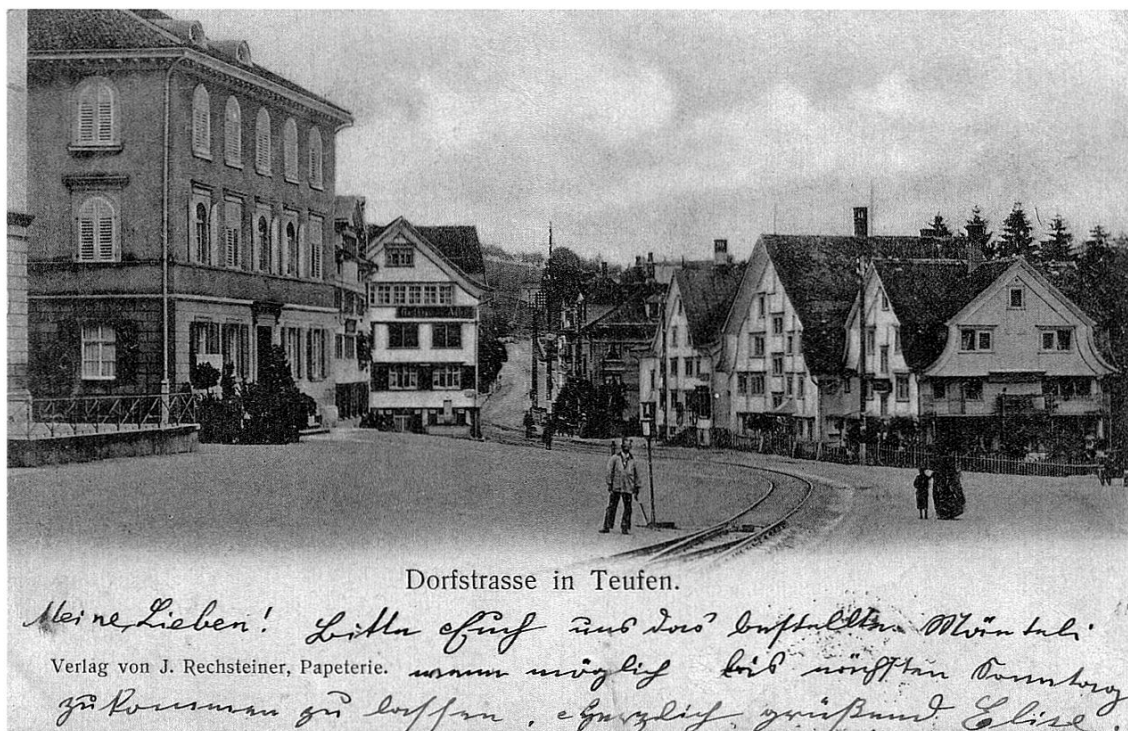 Dorfstrasse in Teufen.
Meine Lieben! Bitte Euch uns das bestellte Mänteli
Verlag von J. Rechsteiner, Papeterie.
wenn möglich bis nächsten Sonntag
zukommen zu lassen. Herzlich grüßend Elise.